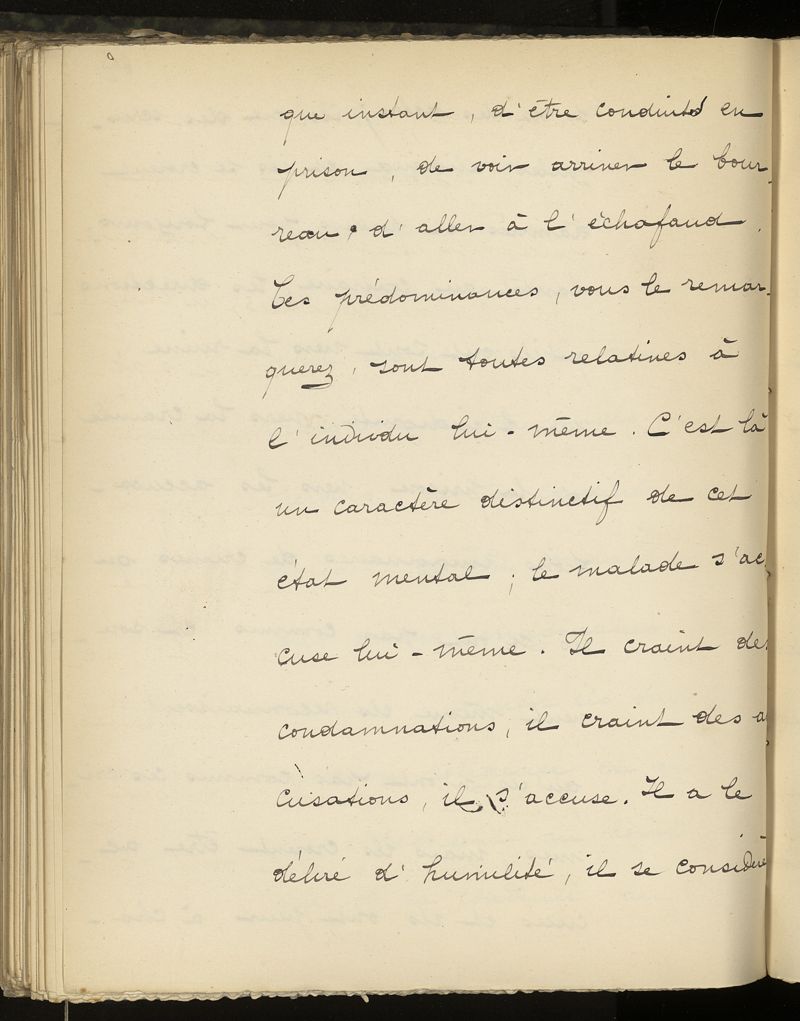 que instant, d'être conduits en
prison, de voir arriver le bour-
reau, d'aller à l'échafaud.
Ces prédominances, vous le remar-
querez, sont toutes relatives à
l'individu lui-même. C'est là
un caractère distinctif de cet
état mental ; le malade s'ac-
cuse lui-même. Il craint des
condamnations, il craint des a
cusations, il s'accuse. Il a le
délire d'humilité, il se considère